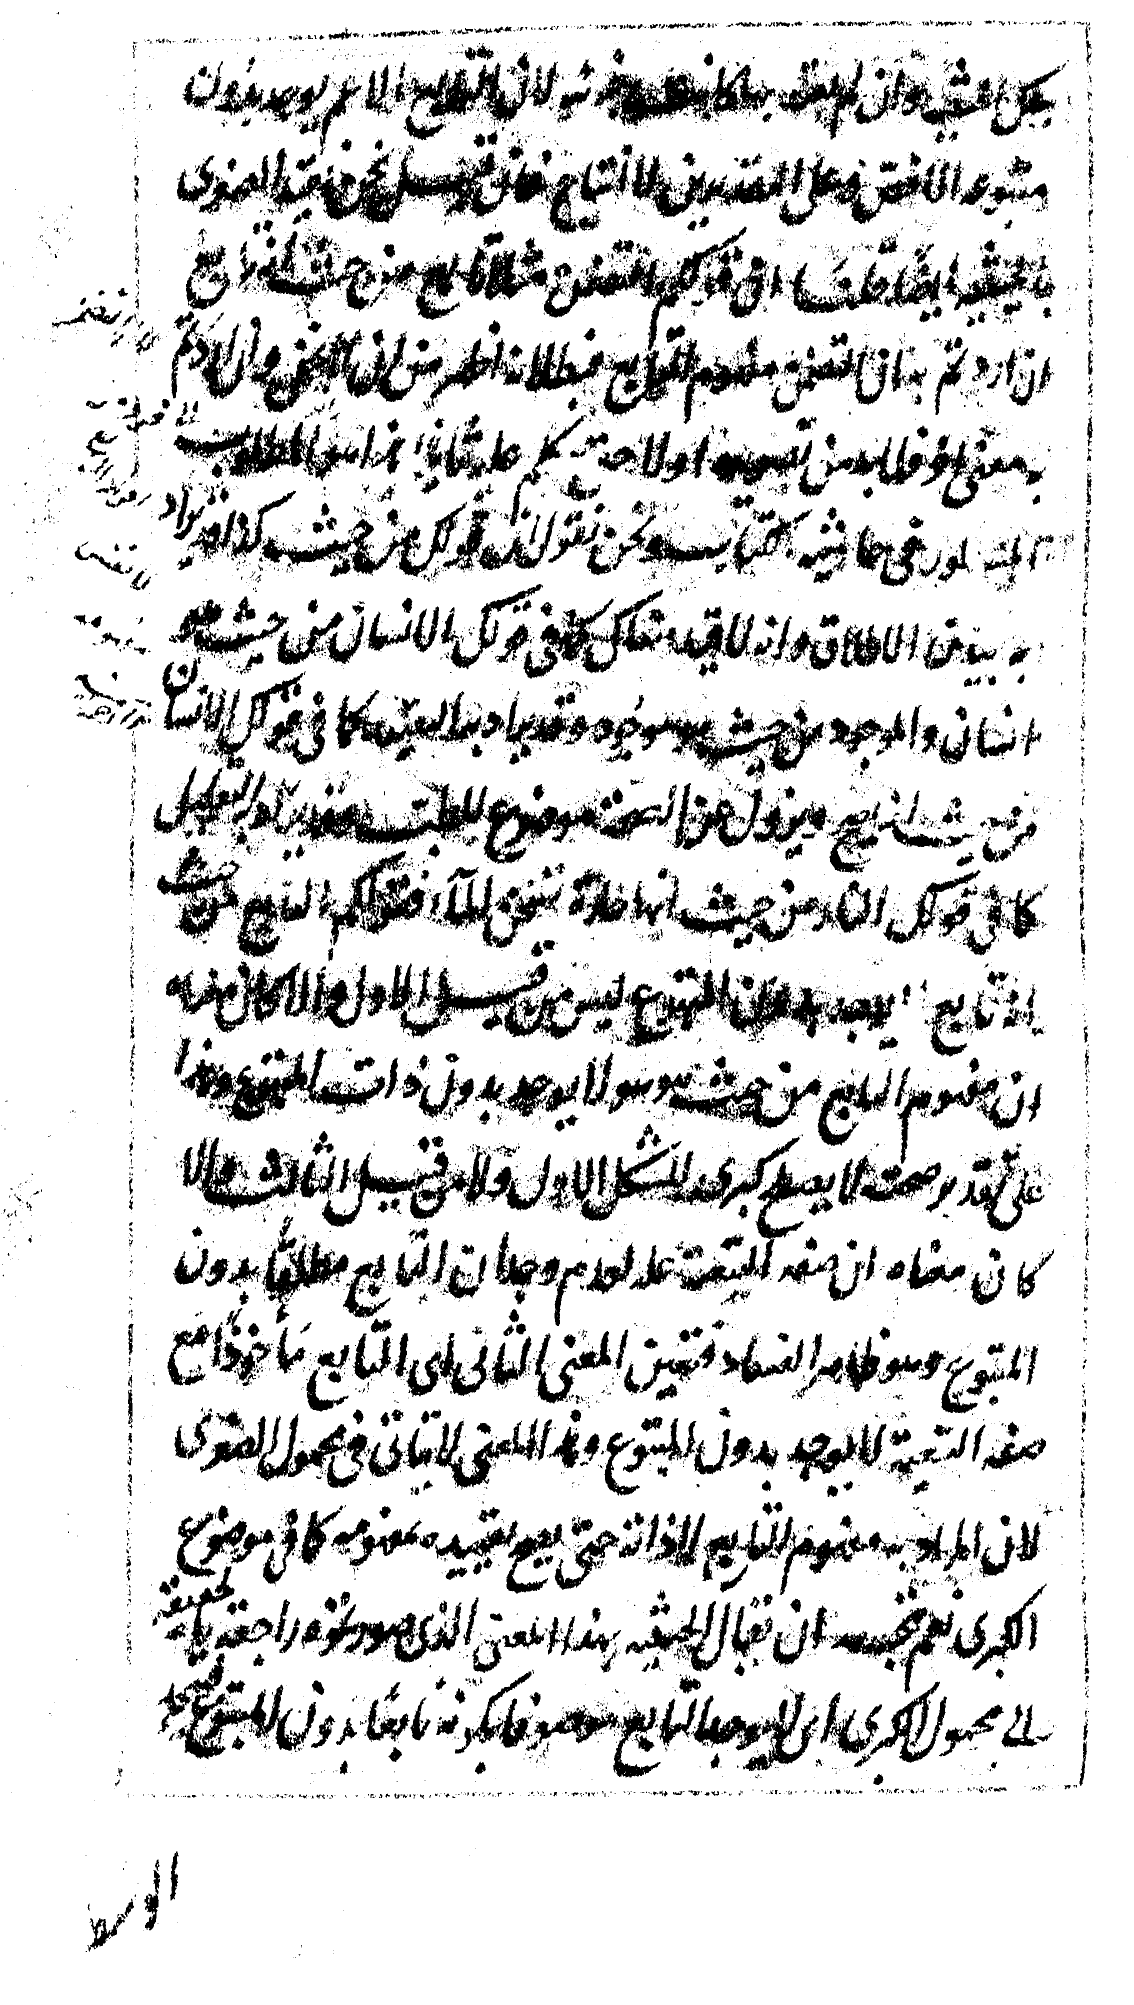 بتلك الحيثية وان لم يقيد بها كانت جزئية لان التابع الاعم يوجد بدون
متبوعه الاخص وعلى التقديرين لا انتاج فان قيل نحن نقيد الصغرى
بالحيثية ايضا قلنا ان قولكم التضمن مثلا تابع من حيث انه تابع
ان اردتم به ان التضمن مفهوم التابع فبطلانه اظهر من ان يخفى وان اردتم
به معنى اخر فلا بد من تصويره اولا حتى نتكلم عليه ثانيا هذا هو المطلوب
المسطور في حاشيته كتابه ونحن نقول ان قولك من حيث كذا قد يراد
به بيان الاطلاق وانه لا قيد هناك كما في قولك الانسان من حيث هو
انسان والموجود من حيث هو موجود وقد يراد به التقييد كما في قولك الانسان
من حيث انه يصح ويزول عنه الصحة موضوع للطب وقد يراد به التعليل
كما في قولك النار من حيث انها حارة تسخن الماء فقولكم التابع من حيث
انه تابع لا يوجد بدون المتبوع ليس من قبيل الاول والا كان معناه
ان مفهوم التابع من حيث هو هو لا يوجد بدون ذات المتبوع وهذا
على تقدير صحته لا يصلح كبرى للشكل الاول ولا من قبيل الثالث والا
كان معناه ان صفة التبعية علة لعدم وجدان التابع مطلقا بدون
المتبوع وهو ظاهر الفساد فتعين المعنى الثاني اى التابع مأخوذا مع
صفة التبعية لا يوجد بدون المتبوع وهذا المعنى لا يتأتى في محمول الصغرى
لان المراد به مفهوم التابع لا ذاته حتى يصح تقييده بمفهومه كما في موضوع
الكبرى نعم يتجه ان يقال الحيثية بهذا المعنى الذي صورتموه راجعة بالحقيقة
الى محمول الكبرى اى لا يوجد التابع موصوفا بكونه تابعا بدون المتبوع فيتحد
الوسط